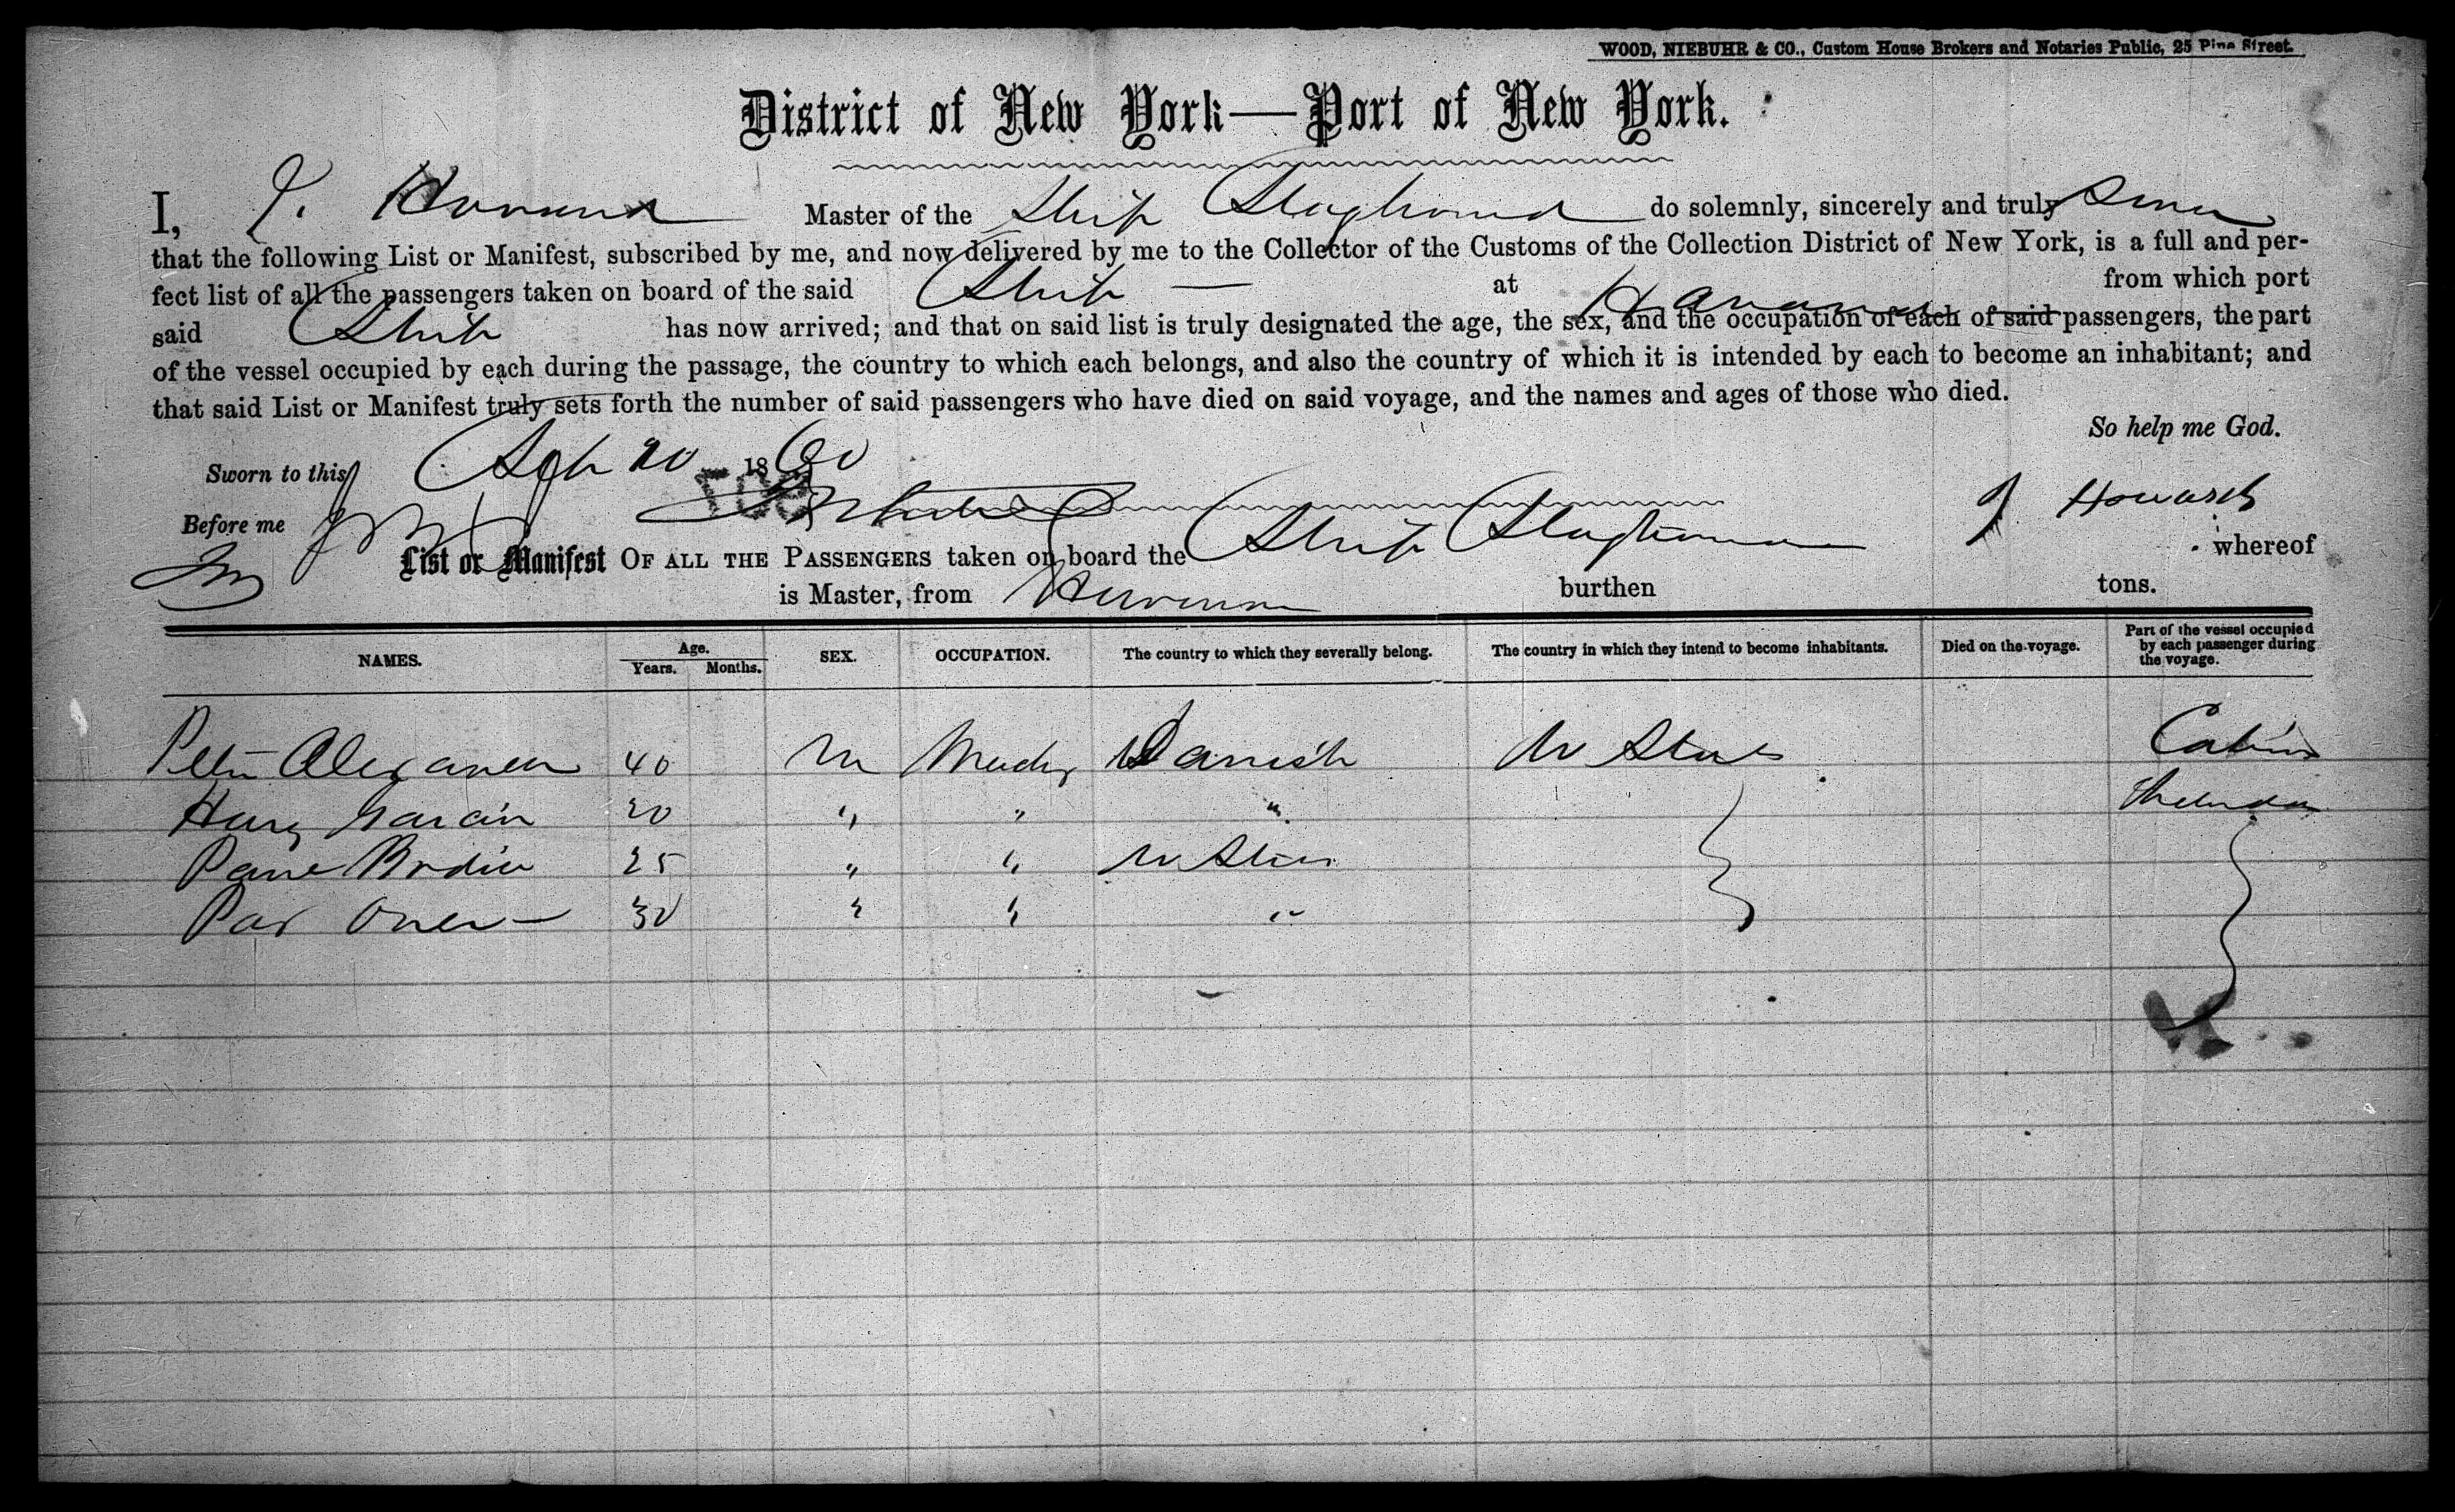 WOOD, NIEBUHR & CO., Custom House Brokers and Notaries Public, 25 Pine Street.
District of New York—Port of New York.
I, J. Howard Master of the Ship Staghound do solemnly, sincerely and truly Swear
that the following List or Manifest, subscribed by me, and now delivered by me to the Collector of the Customs of the Collection District of New York, is a full and per-
fect list of all the passengers taken on board of the said Ship — at Havana from which port
said Ship has now arrived; and that on said list is truly designated the age, the sex, and the occupation of each of said passengers, the part
of the vessel occupied by each during the passage, the country to which each belongs, and also the country of which it is intended by each to become an inhabitant; and
that said List or Manifest truly sets forth the number of said passengers who have died on said voyage, and the names and ages of those who died.
So help me God.
Sworn to this Sep 20 1860
J Howard
Before me
List or Manifest OF ALL THE PASSENGERS taken on board the Ship Staghound whereof
is Master, from Havana burthen tons.
NAMES. Age. Years. Months. SEX. OCCUPATION. The country to which they severally belong. The country in which they intend to become inhabitants. Died on the voyage. Part of the vessel occupied by each passenger during the voyage.
Peter Alexander 40 M Danish U States Cabin
Harry 20 " " "
25 " " U States
30 " " "